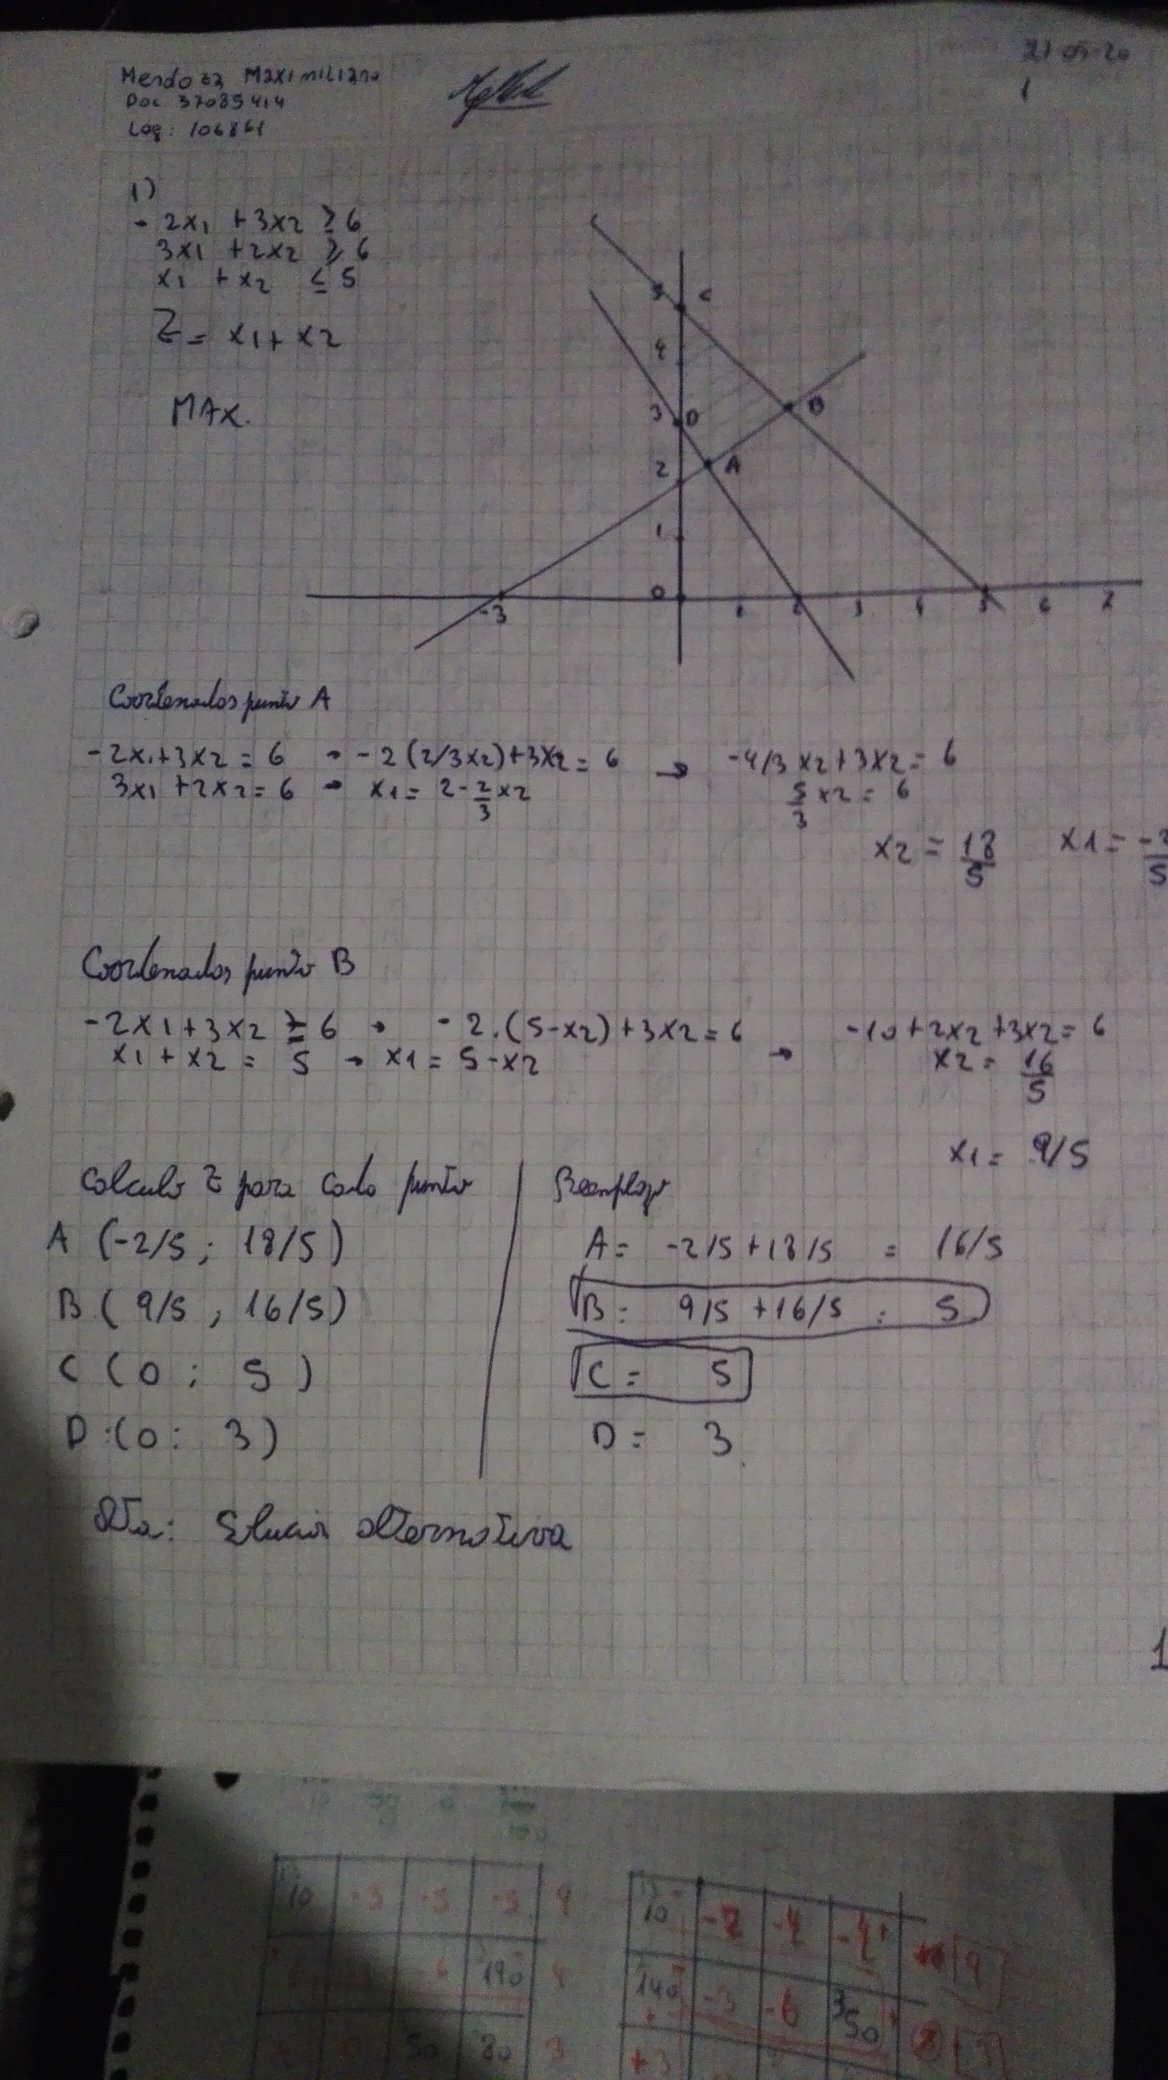 Mendoza Maximiliano
Doc. 37085414
Leg: 106861
27-05-20
1
1)
- 2x1 + 3x2 ≥ 6
3x1 + 2x2 ≥ 6
x1 + x2 ≤ 5
Z = x1 + x2
MAX.
5 C
4
3 D
B
2
A
1
0
-3 1 2 3 4 5 6 7
Coordenadas punto A
-2x1+3x2 = 6 → -2(2/3x2)+3x2 = 6 → -4/3x2+3x2 = 6
3x1+2x2 = 6 → x1 = 2-2/3x2
5/3 x2 = 6
x2 = 18/5 x1 = -2/5
Coordenadas punto B
-2x1+3x2 ≥ 6 → -2.(5-x2)+3x2 = 6 → -10+2x2+3x2 = 6
x1 + x2 = 5 → x1 = 5-x2
x2 = 16/5
x1 = 9/5
Calculo Z para cada punto
Reemplazo
A (-2/5 ; 18/5)
A = -2/5+18/5 = 16/5
B ( 9/5 , 16/5)
B: 9/5 + 16/5 = 5
C ( 0 ; 5 )
C = 5
D:(0: 3)
D = 3
Rta: Solucion alternativa
1
10 -3 -5 -5 9
10 -2 -4 -4 9
-6 190 4
140 -3 -6 50 8 3
50 80 3
+3